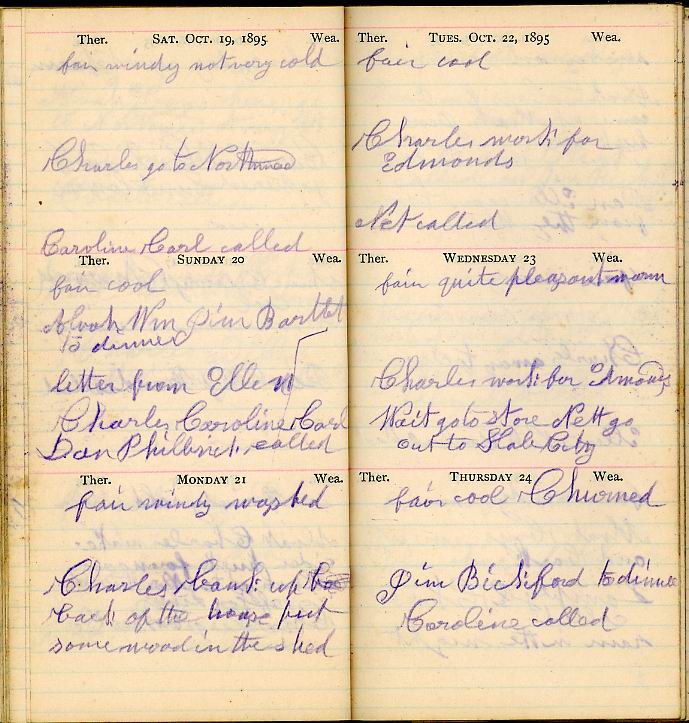 Ther. SAT. OCT. 19, 1895 Wea.
fair windy not very cold
Charles go to
Caroline Carl called
Ther. SUNDAY 20 Wea.
fair cool
Wm Jim Bartlet
to dinner
letter from Ellen
Charles Caroline Carl
Dan Philbrick called
Ther. MONDAY 21 Wea.
fair windy washed
Charles bank up
back of the house put
some wood in the shed
Ther. TUES. OCT. 22, 1895 Wea.
fair cool
Charles work for
Edmonds
Net called
Ther. WEDNESDAY 23 Wea.
fair quite pleasant warm
Charles work for Edmonds
Wait go to store Nett go
out to Slab City
Ther. THURSDAY 24 Wea.
fair cool Churned
Jim Bickford to dinner
Caroline called